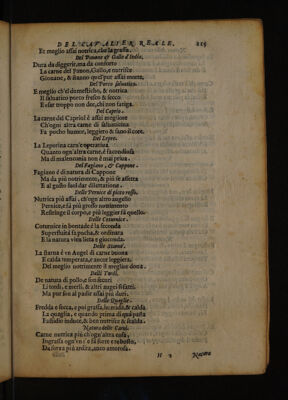 DEL CAVALIER REALE. 225
Et meglio assai notrica, che la grassa.
Del Pauone & Gallo d'India.
Dura da diggerir, ma da conforto
La carne del Pauon, Gallo, e nutrisce
Giouane, & stanno quei pur assai morte.
Del Porco saluatico.
E meglio ch'el domestico, & notrica
Il saluatico porco fresco & secco
E esser troppo non dee, chi non fatiga.
Del Caprio.
La carne del Capriol è assai megliore
Ch'ogni altra carne di saluaticina
Fa pocho humor, leggiero & sano il core.
Del Lepre.
La Leporina carn'è operatiua
Quanto ogn'altra carne, è facondiosa
Ma di malenconia non è mai priua.
Del Fagiano, & Cappone.
Fagiano è di natura di Cappone
Ma da più notrimento, & più se assetta
E al gusto suol dar dilettatione.
Delle Pernice di picco rosso.
Nutrica più assai, ch'ogn altro augello
Pernice, e fa più grosso notrimento
Restringe il corpo, e più leggier fa quello.
Delle Coturnice.
Coturnice in bontade è la seconda
Superfluità fa pucha, & ordinata
E la natura viua lieta e gioconda.
Delle Starne.
La starna è vn Augel di carne buona
E calda temperata, e ancor leggiera
Del meglio notrimento è meglior dona.
Delli Tordi.
De natura di pollo, e son securi
Li tordi, e merli, & altri augei sì fatti
Ma pur son al padir assai più duri.
Delle Quaglie.
Fredda e secca, e poi grossa, humida, & calda
La quaglia, e quando prima di qua passa
Fastidio induce, & ben nutrisce & scalda.
Natura delle Carni.
Carne nutrica più ch'ogn'altra cosa,
Ingrassa ogn'vn e'l fa forte e robusto,
Da forza più ardita, anco amorosa.
H 2 Natura